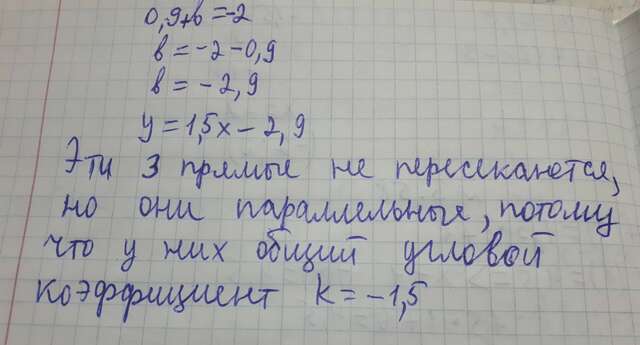 0,9+в=-2
в=-2-0,9
в=-2,9
y=1,5x-2,9
Эти 3 прямые не пересеканется,
но они параллельные, потому
что у них общий угловой
коэффициент k=-1,5